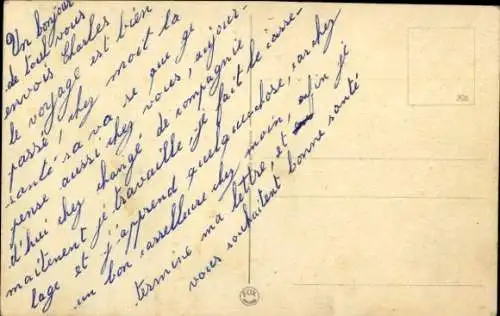 Un bonjour
de tout vous
envois Charles
le voyage est bien
passé, chez moit la
santé sa va se que ge
pense aussi chez vous, aujour-
d'hui chez changé de compagnie
maitenent je travaille je fait le carre-
lage et j'apprend quelquechose, carchez
un bon carselleuse chez moin, enfin je
termine ma lettre, et
vous souhaitent bonne santé
FOX